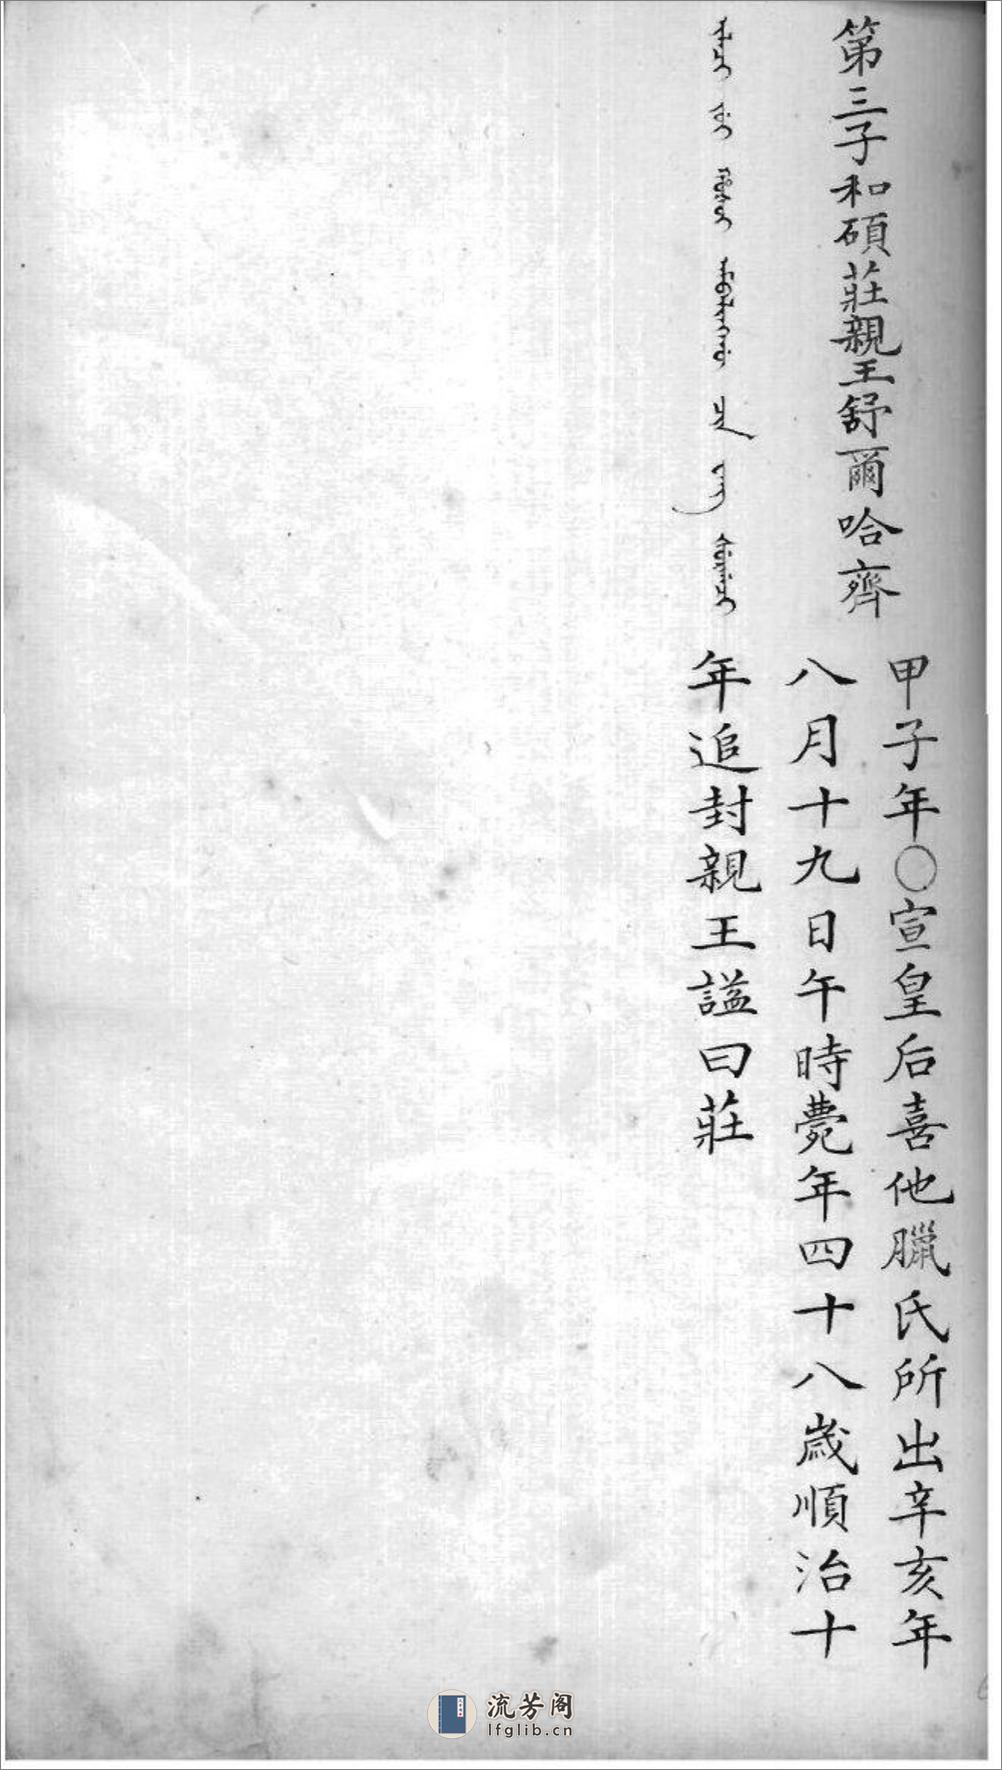 第三子和碩莊親王舒爾哈齊
甲子年〇宣皇后喜他臘氏所出辛亥年
八月十九日午時薨年四十八歲順治十
年追封親王謚曰莊
流芳阁
lfglib.cn